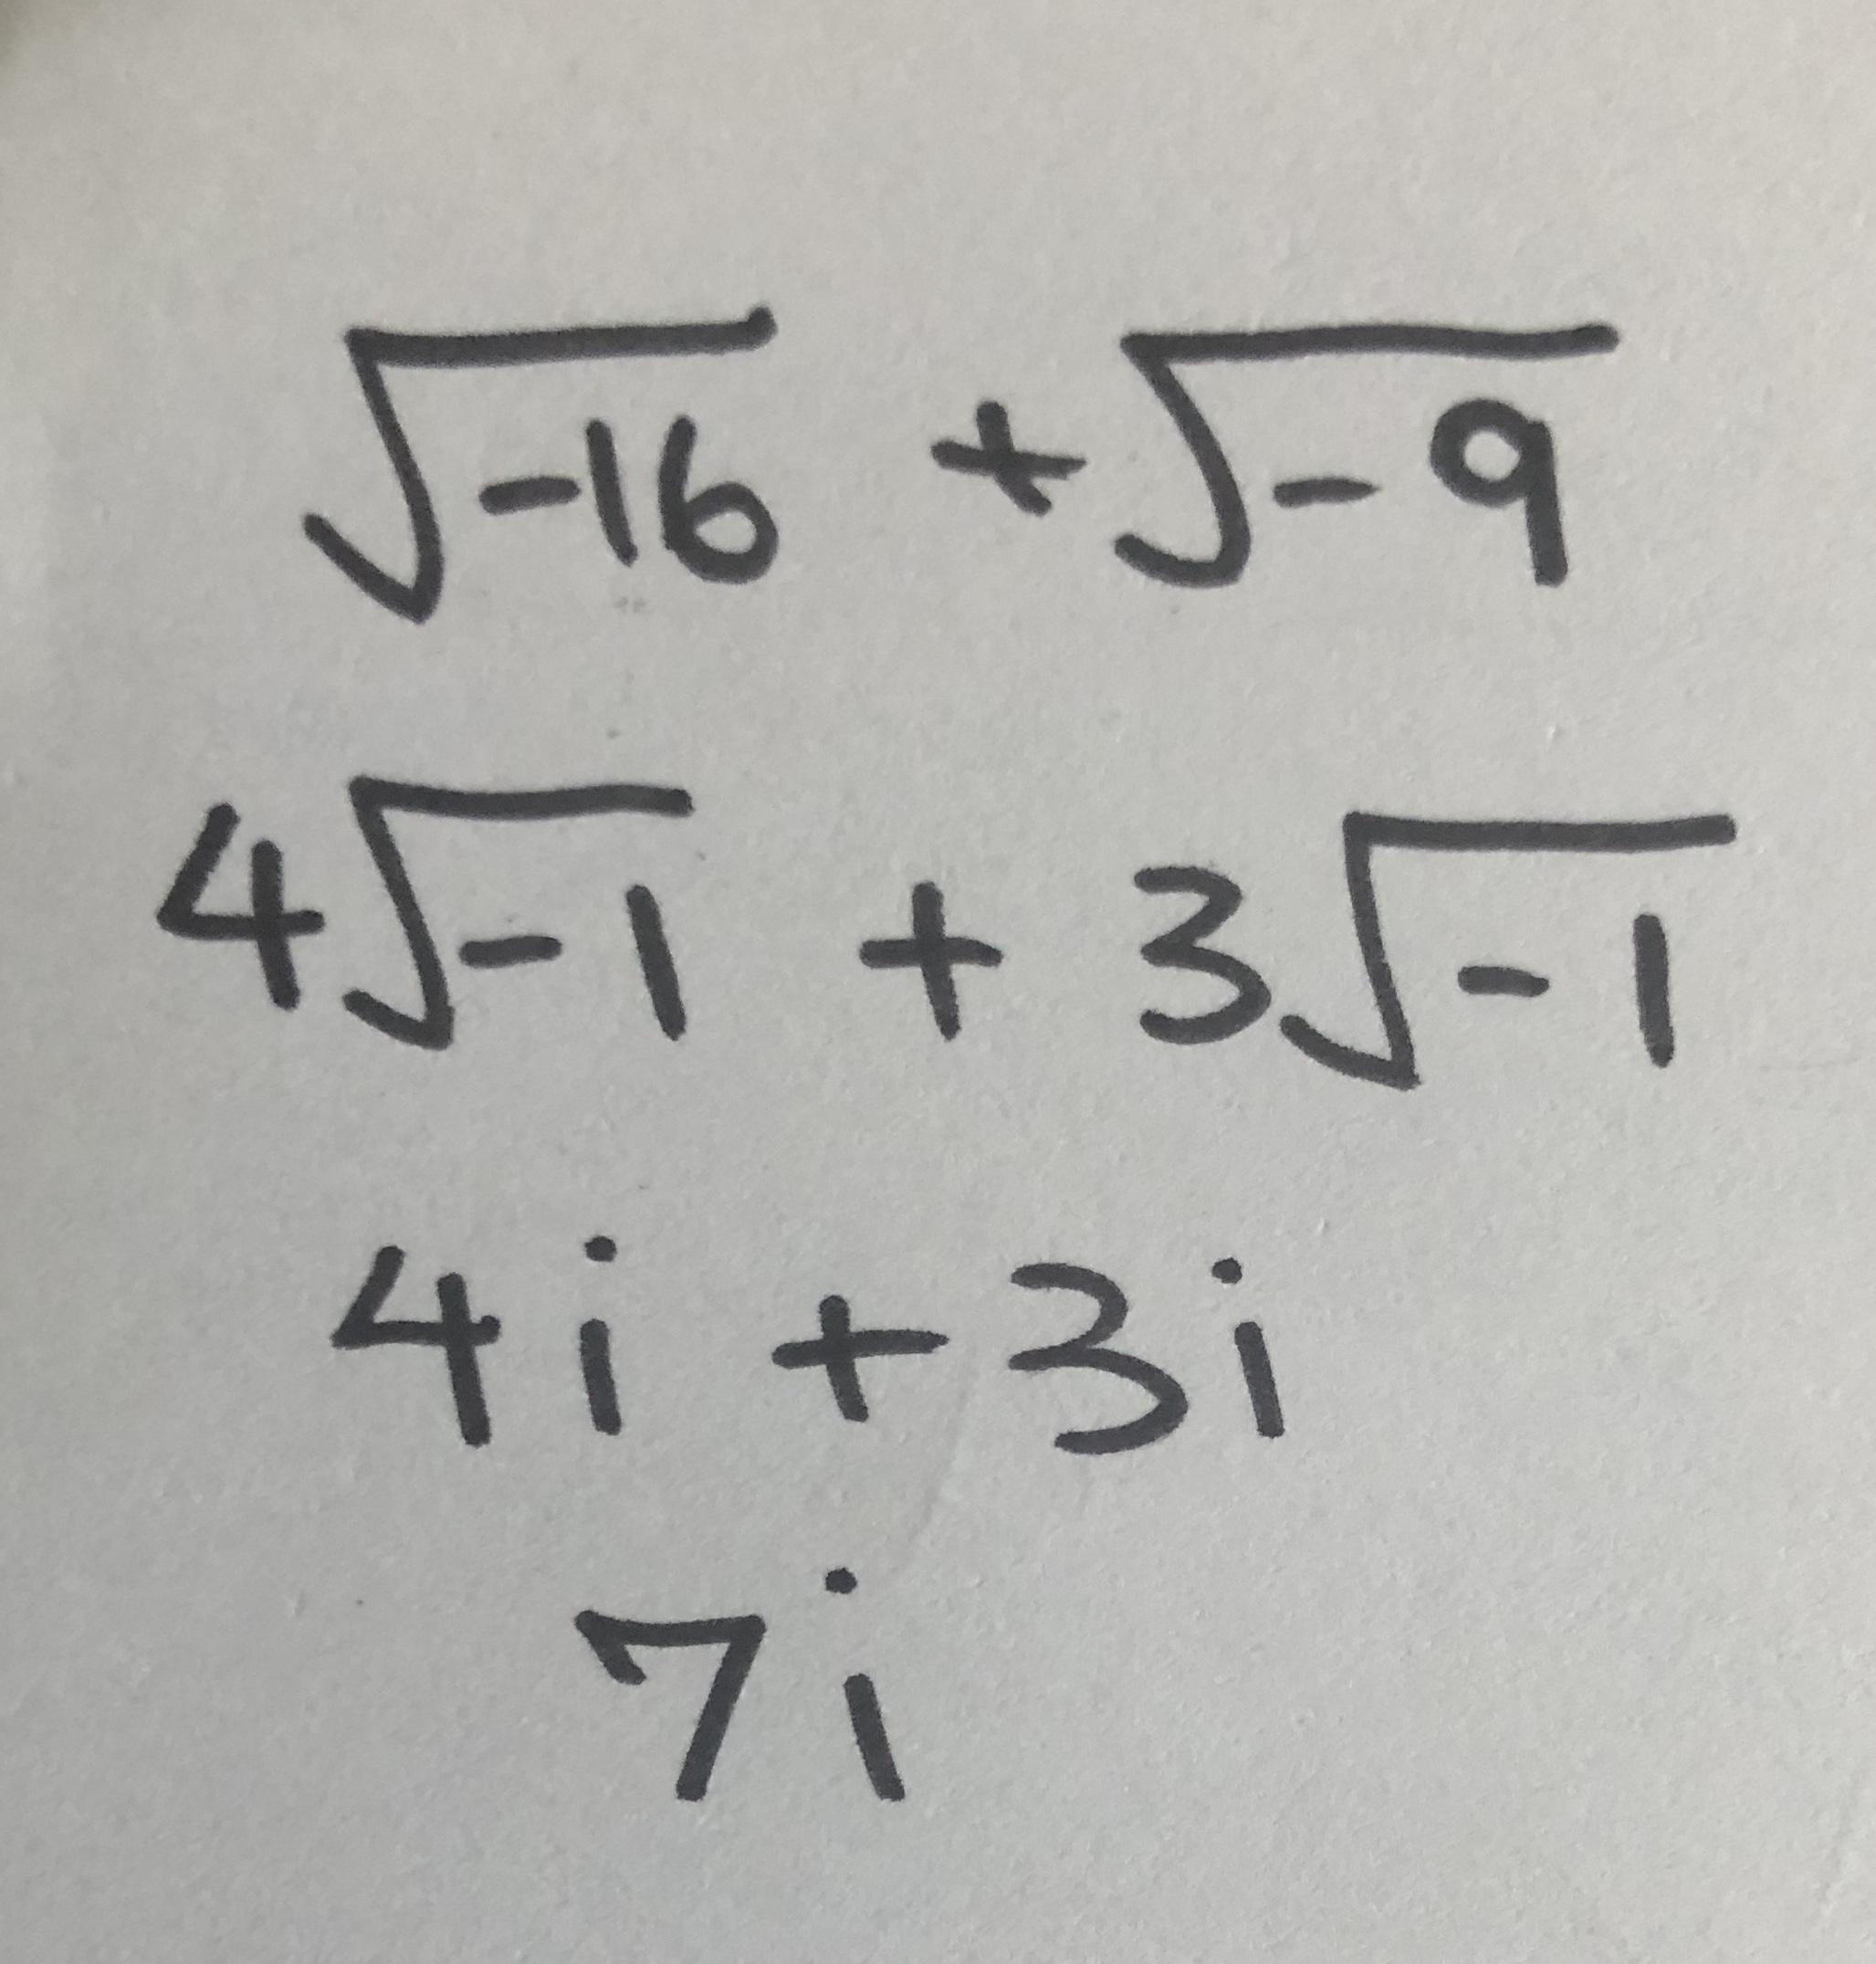 √-16 + √-9
4√-1 + 3√-1
4i + 3i
7i